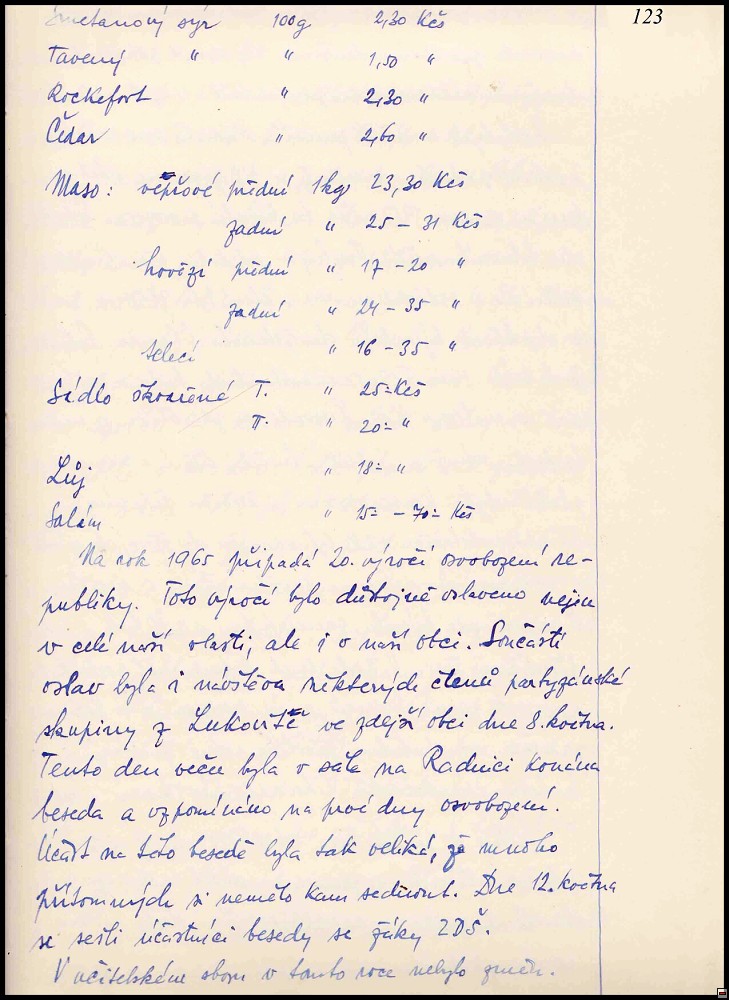 123
Smetanový sýr 100g 2,30 Kčs
Tavený " " 1,50 "
Rockefort " 2,30 "
Čedar " 2,60 "
Maso: vepřové přední 1kg 23,30 Kčs
zadní " 25 – 31 Kčs
hovězí přední " 17 – 20 "
zadní " 24 – 35 "
telecí " 16 – 35 "
Sádlo škvařené I. " 25.- Kčs
II. " 20.- "
Lůj " 18.- "
Salám " 15.- – 70.- Kčs
Na rok 1965 připadá 20. výročí osvobození re-
publiky. Toto výročí bylo důstojně oslaveno nejen
v celé naší vlasti, ale i v naší obci. Součástí
oslav byla i návštěva některých členů partyzánské
skupiny z Lukovště ve zdejší obci dne 8. května.
Tento den večer byla v sále na Radnici konána
beseda a vzpomínáno na prvé dny osvobození.
Účast na této besedě byla tak veliká, že mnoho
přítomných si nemělo kam sednout. Dne 12. května
se sešli účastníci besedy se žáky ZDŠ.
V učitelském sboru v tomto roce nebylo změn.